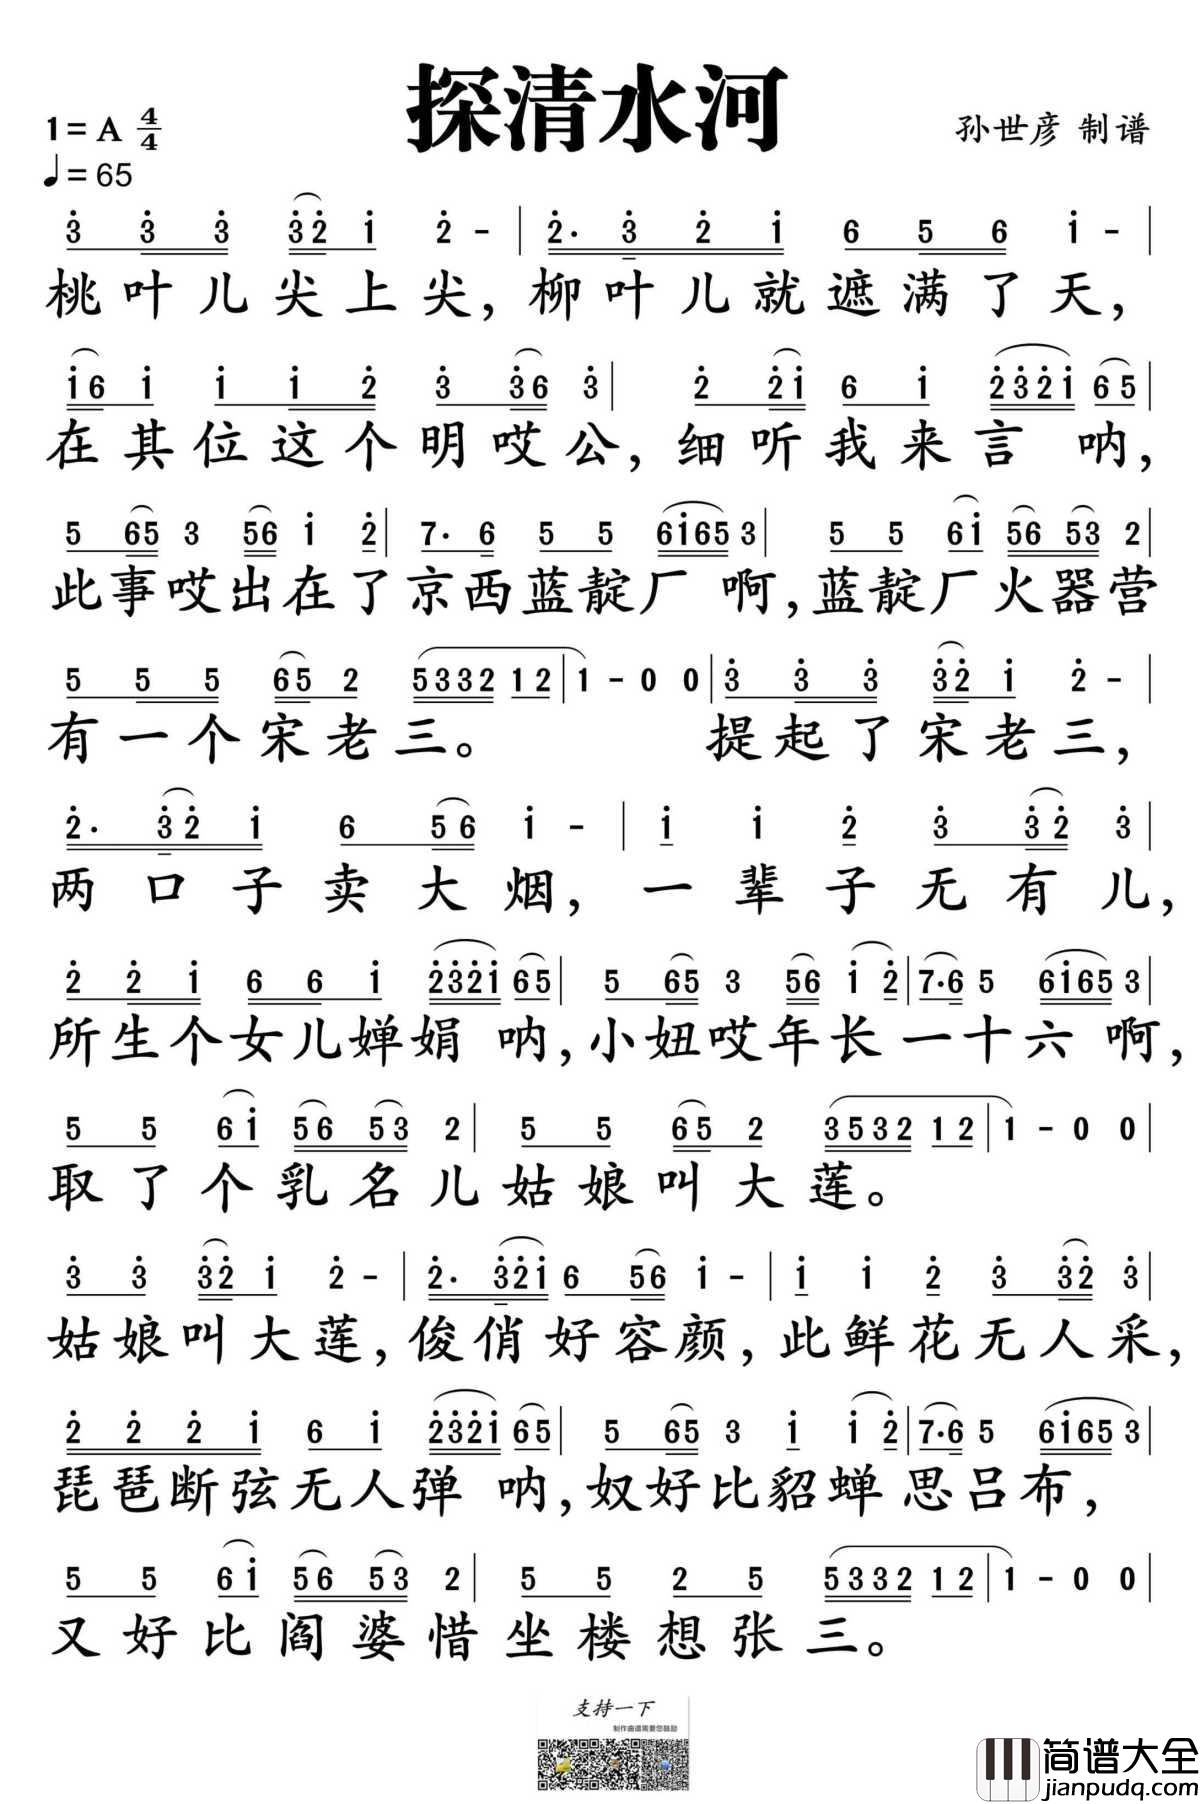 探清水河
1=A 4/4
孙世彦 制谱
♩=65
3 3 3 3 2 1 2 - | 2. 3 2 1 6 5 6 1 - |
桃叶儿尖上尖,柳叶儿就遮满了天,
1 6 1 1 1 2 3 3 6 3 | 2 2 1 6 1 2 3 2 1 6 5 |
在其位这个明哎公,细听我来言 呐,
5 6 5 3 5 6 1 2 | 7. 6 5 5 6 1 6 5 3 | 5 5 6 1 5 6 5 3 2 |
此事哎出在了京西蓝靛厂 啊,蓝靛厂火器营
5 5 5 6 5 2 5 3 3 2 1 2 | 1 - 0 0 | 3 3 3 3 2 1 2 - |
有一个宋老三。 提起了宋老三,
2. 3 2 1 6 5 6 1 - | 1 1 2 3 3 2 3 |
两口子卖大烟,一辈子无有儿,
2 2 1 6 6 1 2 3 2 1 6 5 | 5 6 5 3 5 6 1 2 | 7. 6 5 6 1 6 5 3 |
所生个女儿婵娟 呐,小妞哎年长一十六 啊,
5 5 6 1 5 6 5 3 2 | 5 5 6 5 2 3 5 3 2 1 2 | 1 - 0 0 |
取了个乳名儿姑娘叫大莲。
3 3 3 2 1 2 - | 2. 3 2 1 6 5 6 1 - | 1 1 2 3 3 2 3 |
姑娘叫大莲,俊俏好容颜,此鲜花无人采,
2 2 2 1 6 1 2 3 2 1 6 5 | 5 6 5 3 1 1 2 | 7. 6 5 6 1 6 5 3 |
琵琶断弦无人弹 呐,奴好比貂蝉思吕布,
5 5 6 1 5 6 5 3 2 | 5 5 2 5 5 3 3 2 1 2 | 1 - 0 0 |
又好比阎婆惜坐楼想张三。
支持一下
制作曲谱需要您鼓励
简谱大全
jianpudq.com